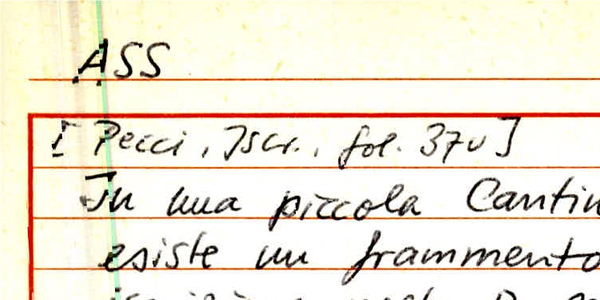 ASS
[Pecci, Iscr., fol. 37v]
In una piccola Cantin
esiste un frammento